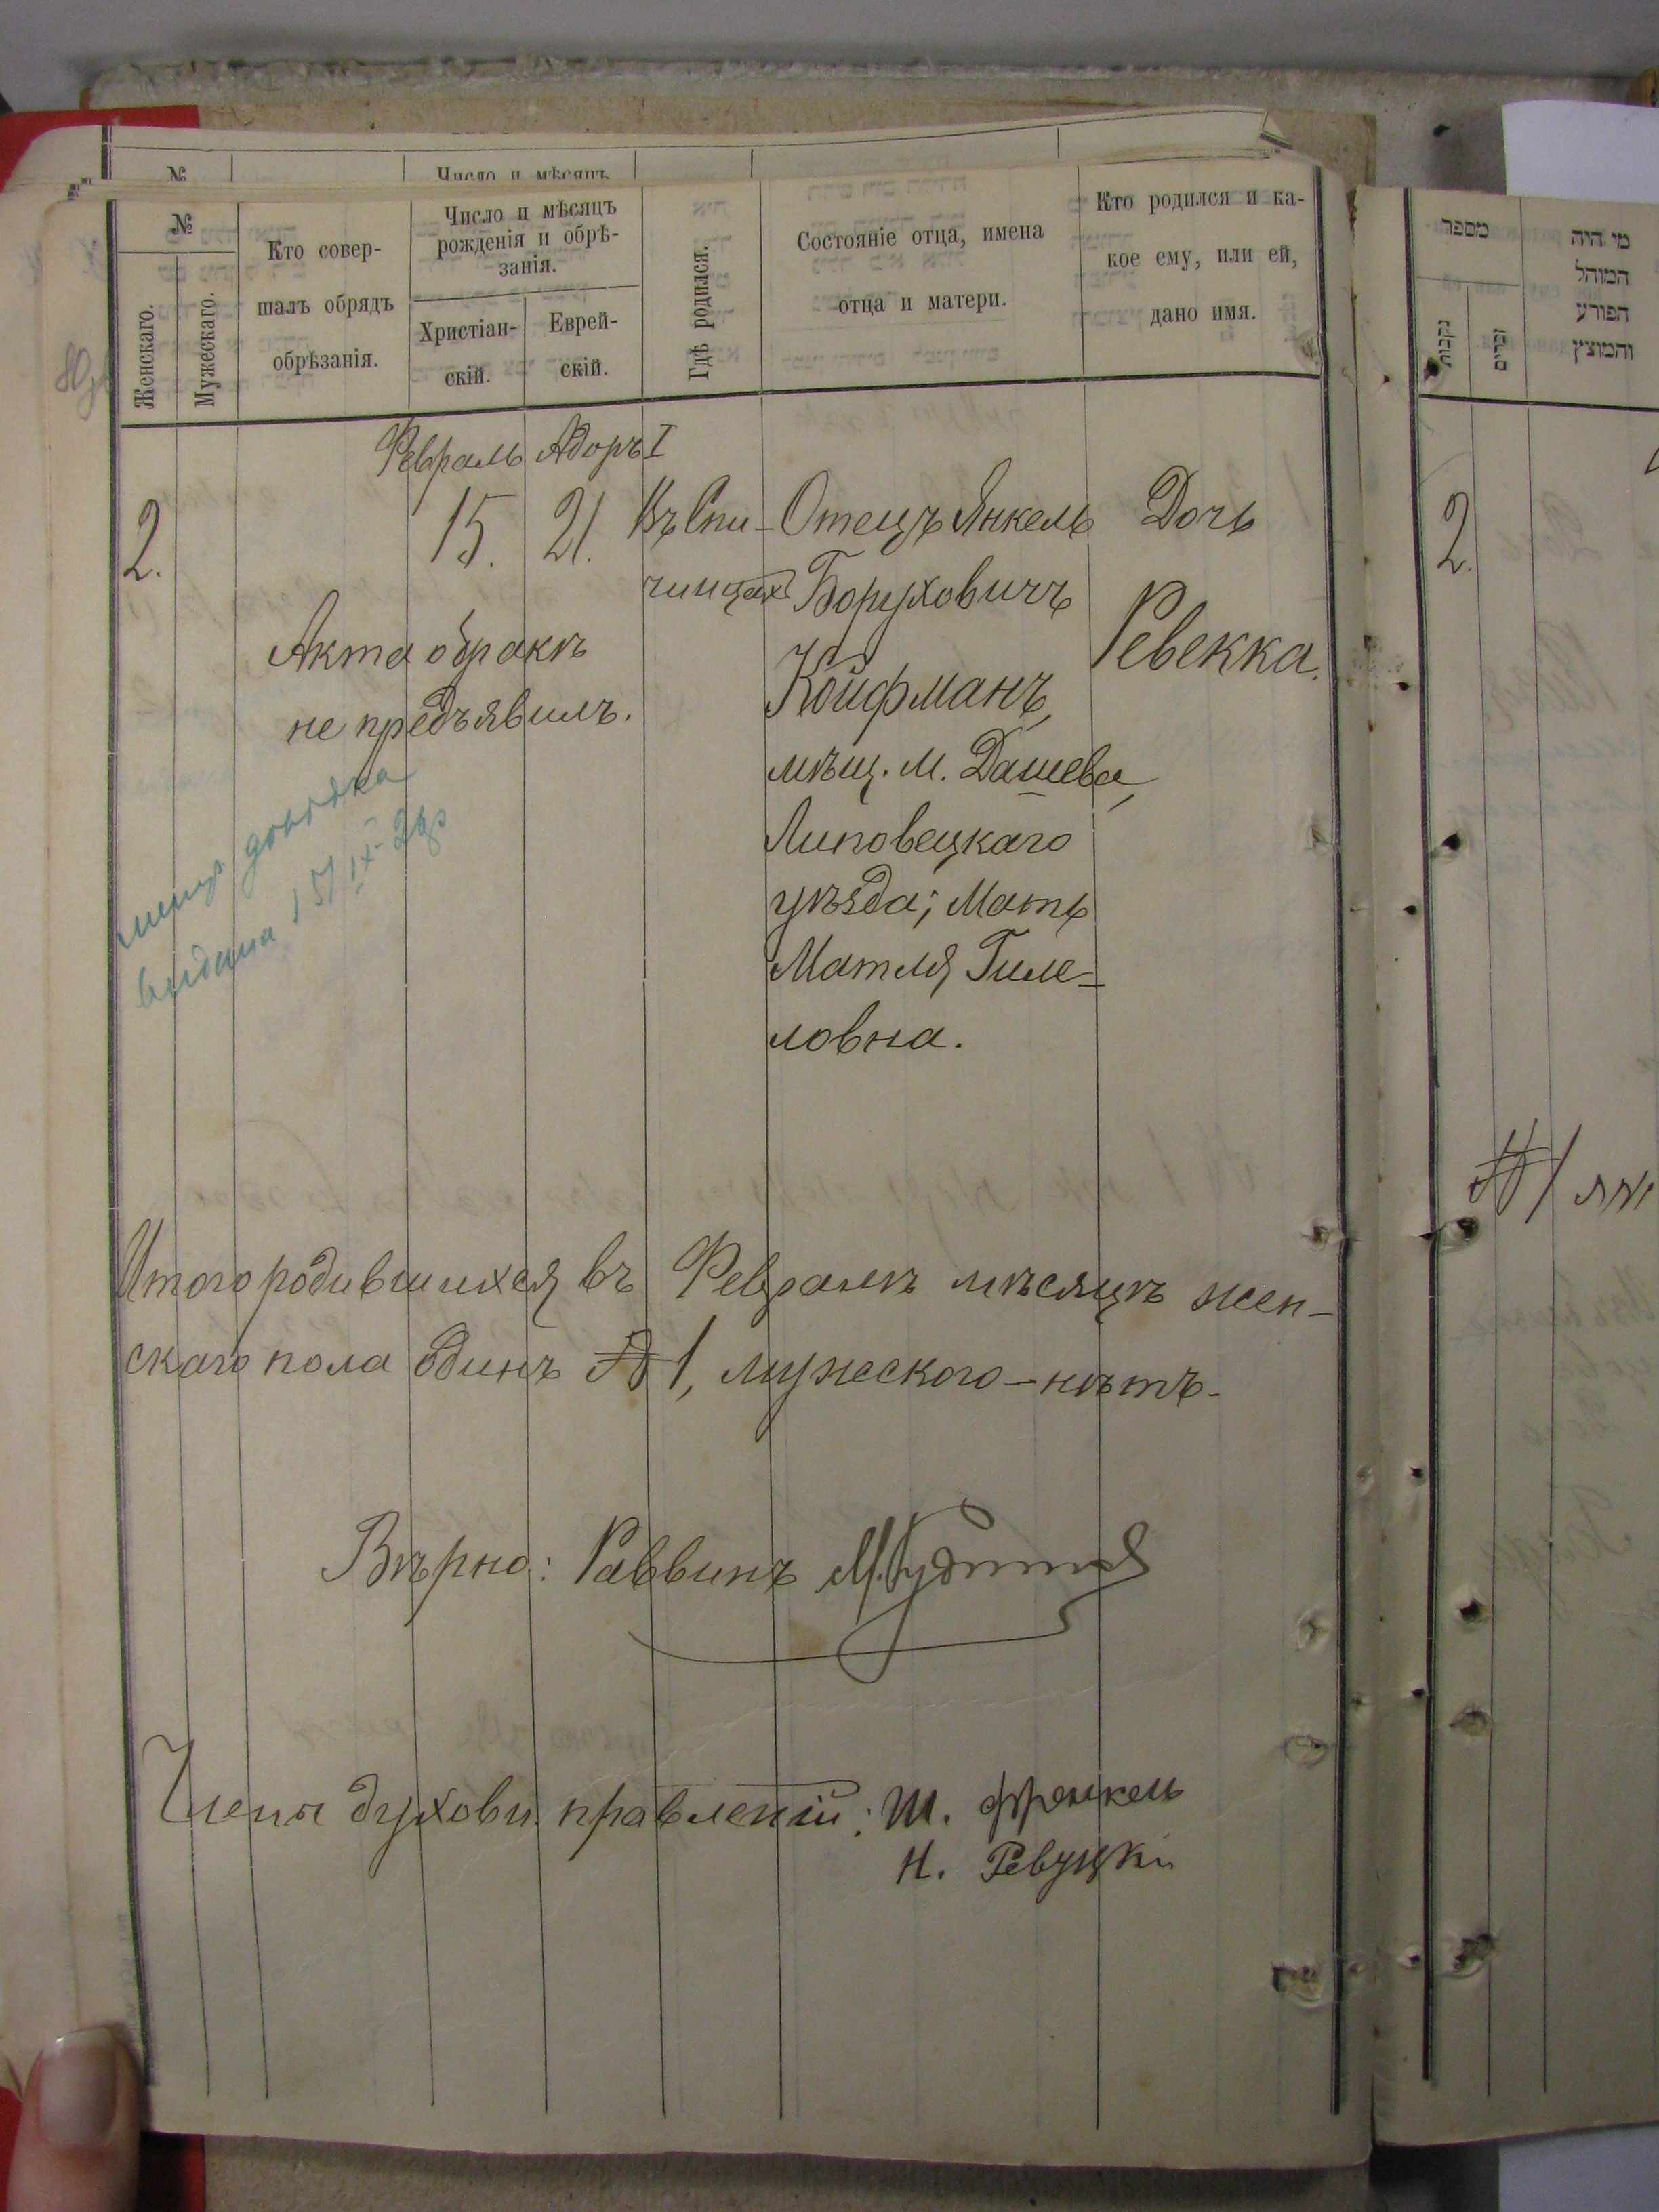 №
Число и мѣсяцъ
№
Женскаго.
Мужескаго.
Кто совер-
шалъ обрядъ
обрѣзанія.
Число и мѣсяцъ
рожденія и обрѣ-
занія.
Христіан-
скій.
Еврей-
скій.
Гдѣ родился.
Состояніе отца, имена
отца и матери.
Кто родился и ка-
кое ему, или ей,
дано имя.
Февраль Адоръ I
2.
15. 21.
Въ Спи-
чинцах
Отецъ Янкель
Боруховичъ
Койфманъ,
мѣщ. м. Дашева,
Липовецкаго
уѣзда; Мать
Матля Гиле-
ловна.
Дочь
Ревекка.
Акта о бракѣ
не предъявилъ.
видана 15/IX-
Итого родившихся въ Февралѣ мѣсяцѣ жен-
скаго пола одинъ № 1, мужеского - нѣтъ-
Вѣрно: Раввинъ
Члены духовн. правленій: Ш. Френкель
Н. Ревуцкій
מספר
נקבות
זכרים
מי היה
המוהל
הפורע
והמוצץ
2.
№ 1